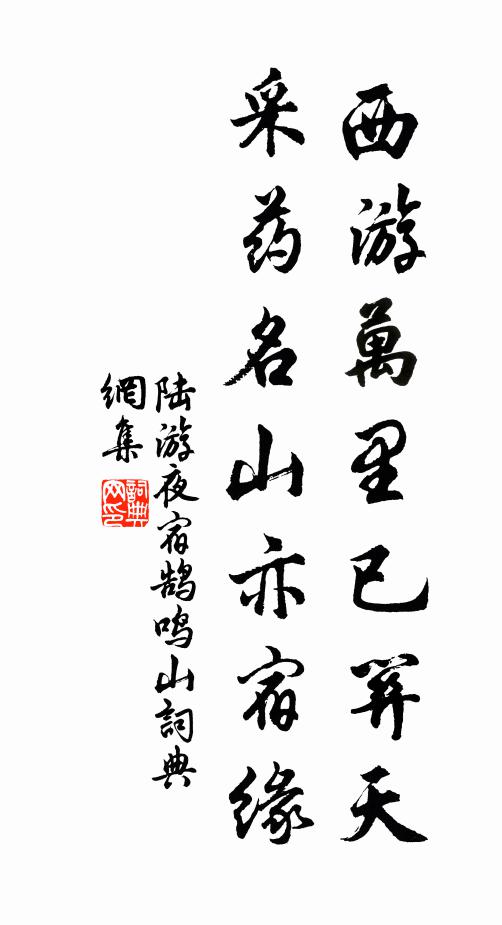 西游萬里已關天
采药名山亦宿緣
陆游夜宿鹄鸣山詞典
網集
詞典
网印